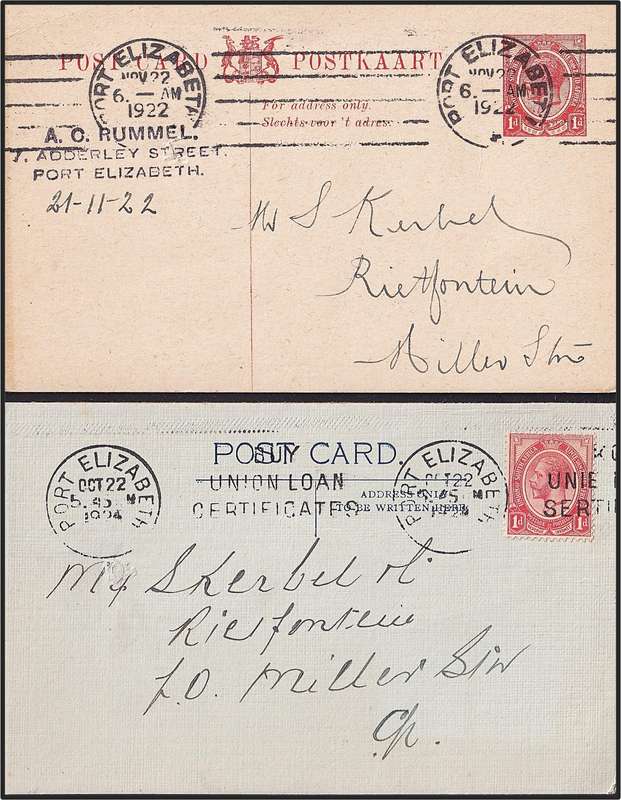 POST CARD POSTKAART
PORT ELIZABETH
NOV 22
6. — AM
1922
PORT ELIZABETH
NOV 22
6. — AM
1922
1d 1d
For address only.
Slechts voor 't adres.
A. C. RUMMEL,
7, ADDERLEY STREET,
PORT ELIZABETH.
21-11-22
Mr S Kerbel
Rietfontein
Miller Stn
POST CARD.
PORT ELIZABETH
OCT 22
5. 45
1924
BUY
UNION LOAN
CERTIFICATES
PORT ELIZABETH
OCT 22
5. 45
1924
ADDRESS ONLY
TO BE WRITTEN HERE
UNIE
SERTI
1d 1d
S Kerbel
Rietfontein
P.O. Miller Stn